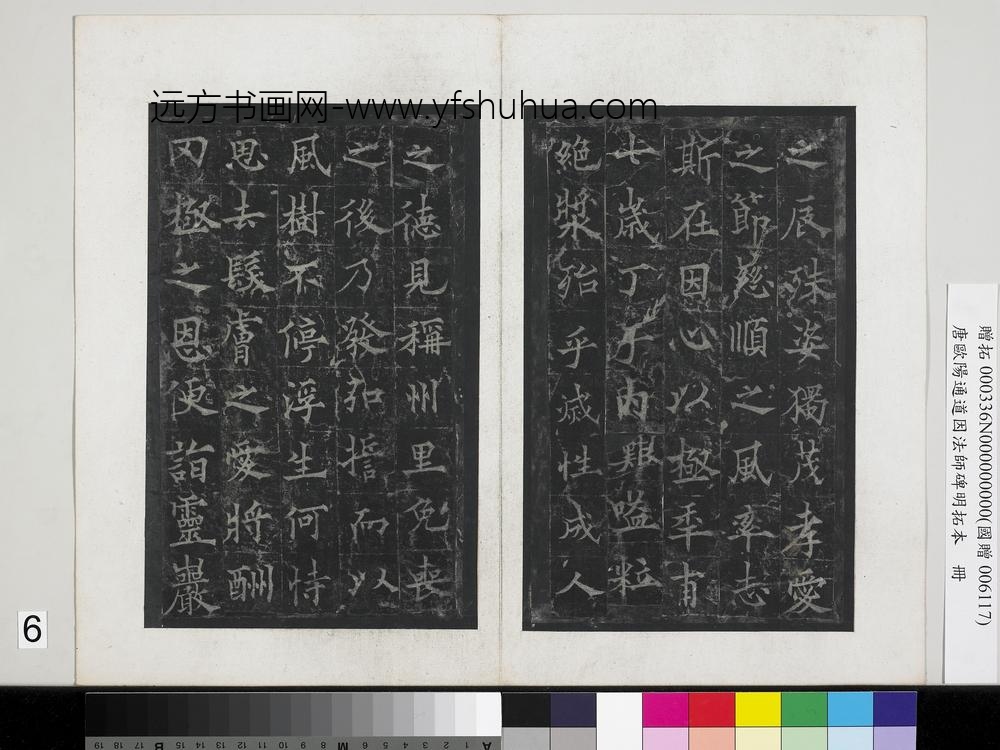 远方书画网-www.yfshuhua.com
之辰殊姿獨茂孝愛
之節慈順之風率志
斯在因心以極年甫
七歲丁于內艱嗌粒
絕漿殆乎滅性成人
之德見稱州里免喪
之後乃發弘誓而以
風樹不停浮生何恃
思去髮膚之愛將酬
罔極之恩便詣靈巖
贈拓 000336N000000000(國贈 006117)
唐歐陽通道因法師碑明拓本 冊
6
19 18 17 16 B 15 14 13 12 11 10 9 8 M 7 6 5 4 3 2 1 A